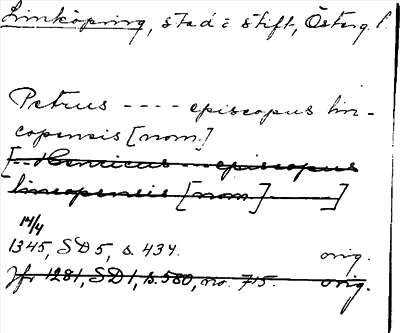 Linköping, stad i stift, Österg. l.
Petrus ---- episcopus lin-
copensis [nom.]
[... Henricus --- episcopus
lincopensis [nom] ——]
14/4
1345, SD 5, s. 434. orig.
Jfr 1281, SD 1, s. 580, no. 715. orig.